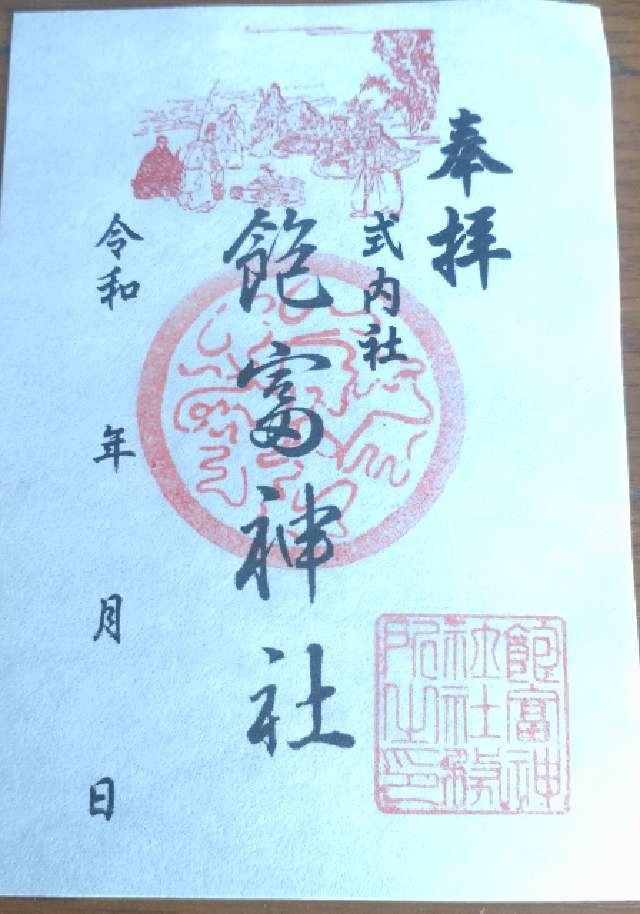 奉拝
式内社
飽富神社
令和 年 月 日
飽富神
社社務
所之印